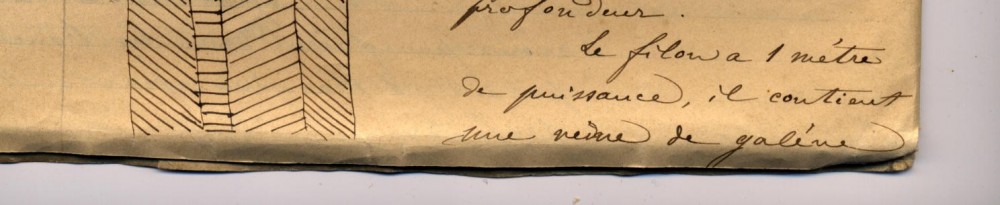 profondeur.
Le filon a 1 mètre
de puissance, il contient
une veine de galène